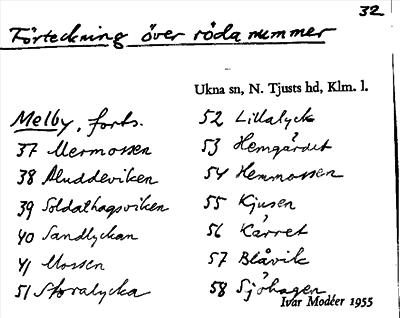 32
Förteckning över röda nummer
Ukna sn, N. Tjusts hd, Klm. l.
Melby, forts.
37 Mermossen
38 Aluddeviken
39 Soldathagsviken
40 Sandlyckan
41 Mossen
51 Storalycka
52 Lillalyck
53 Hemgärdet
54 Hemmossen
55 Kjusen
56 Kärret
57 Blåvik
58 Sjöhagen
Ivar Modéer 1955